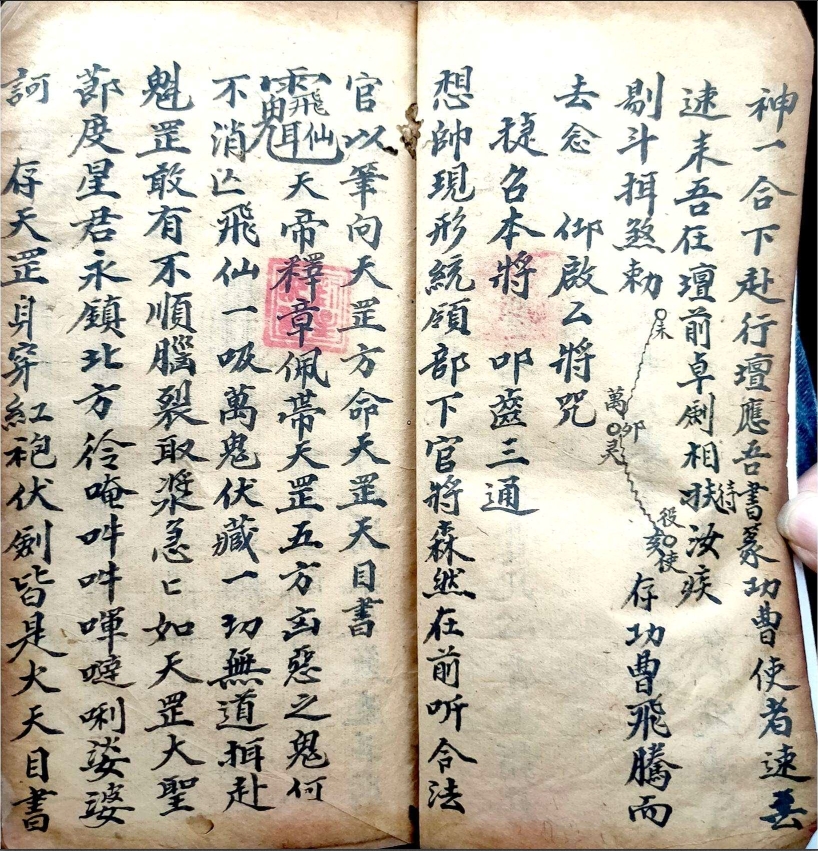 神一合下赴行壇應吾書篆功曹使者速去
速来吾在壇前卓劍相扶待汝疾
剔斗揖煞勑
未
萬卯灵
役亥使
存功曹飛騰而
去念 仰啟厶將咒
䄛召本將 叩齒三通
想帥現形統領部下官將森然在前听合法
官以筆向天罡方命天罡天目書
天帝釋章佩帶天罡五方凶惡之鬼何
不消亾飛仙一吸萬鬼伏藏一切無道揖赴
魁罡敢有不順腦裂取漿急匕如天罡大聖
節度星君永鎮北方彾唵吽吽㖶噠唎娑婆
訶 存天罡身穿紅袍伏劍皆是火天目書